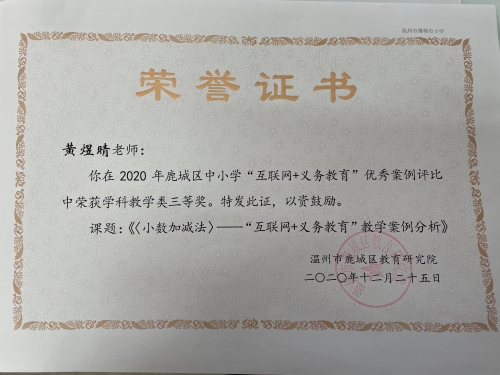 荣誉证书
黄煜晴老师：
你在 2020 年鹿城区中小学“互联网+义务教育”优秀案例评比
中荣获学科教学类三等奖。特发此证，以资鼓励。
课题：《〈小数加减法〉——“互联网+义务教育”教学案例分析》
温州市鹿城区教育研究院
二〇二〇年十二月二十五日